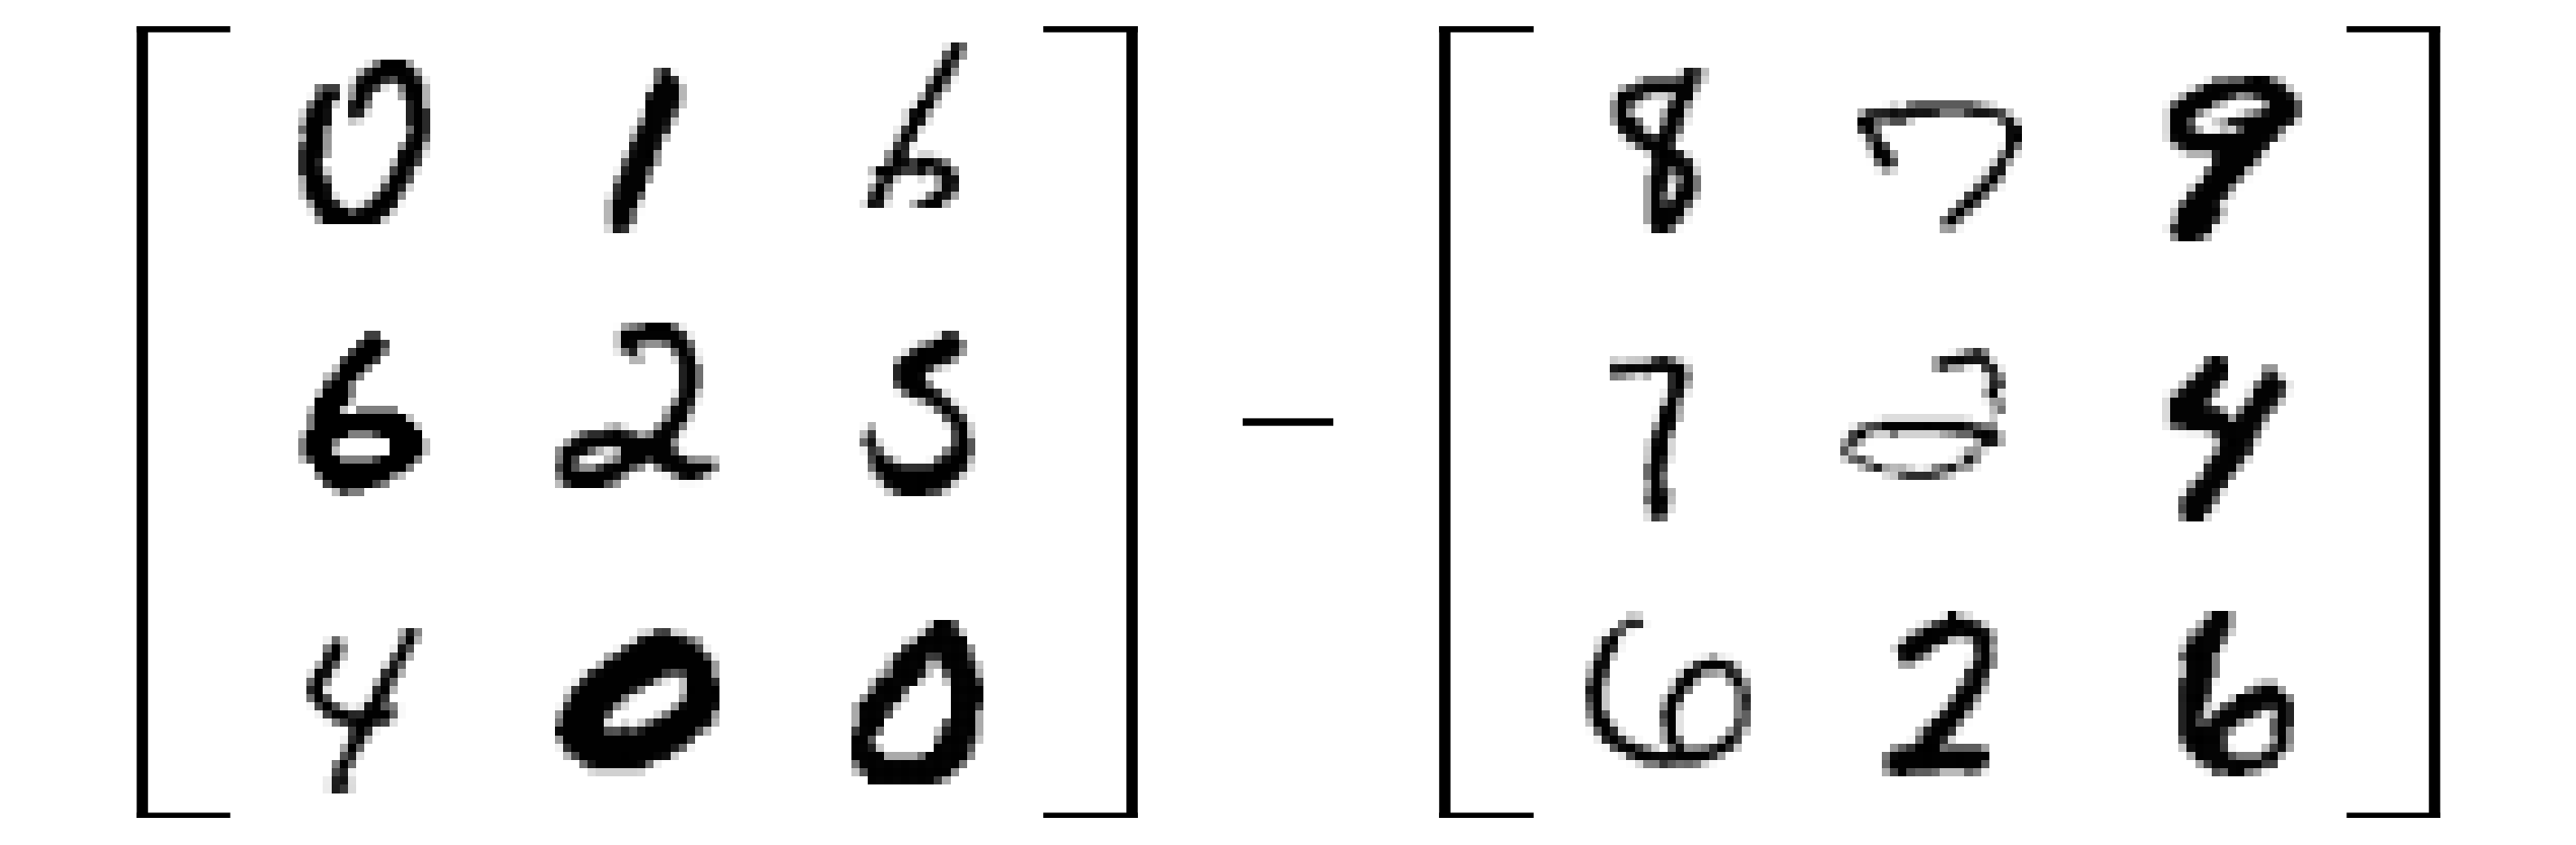 [0 1 6; 6 2 5; 4 0 0] − [8 7 9; 7 2 4; 6 2 6]